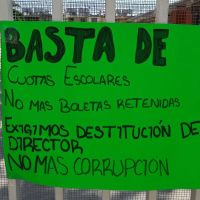 BASTA DE
CUOTAS ESCOLARES
NO MAS BOLETAS RETENIDAS
EXIGIMOS DESTITUCIÓN DE
DIRECTOR
NO MAS CORRUPCION